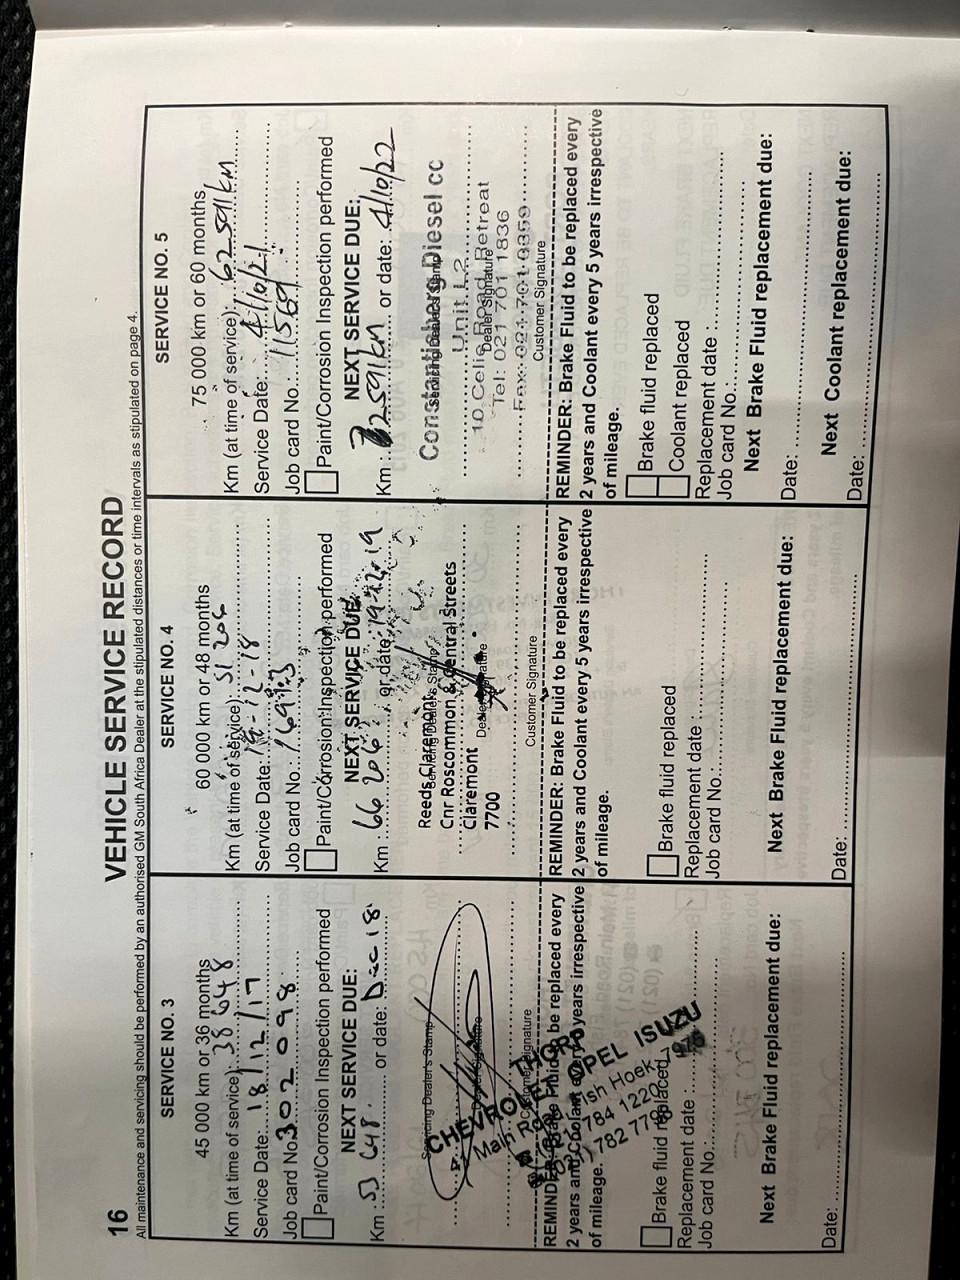 16
VEHICLE SERVICE RECORD
All maintenance and servicing should be performed by an authorised GM South Africa Dealer at the stipulated distances or time intervals as stipulated on page 4.
SERVICE NO. 3
45 000 km or 36 months
Km (at time of service): 38 648
Service Date: 18/12/17
Job card No: 302098
Paint/Corrosion Inspection performed
NEXT SERVICE DUE:
Km : 53 648 or date: Dec 18
Servicing Dealer's Stamp
Dealer Signature
Customer Signature
THORP
CHEVROLET OPEL ISUZU
Main Road, Fish Hoek, 1975
784 1220
782 779
REMINDER: Brake Fluid to be replaced every
2 years and Coolant every 5 years irrespective
of mileage.
Brake fluid replaced
Replacement date :
Job card No.
Next Brake Fluid replacement due:
Date:
SERVICE NO. 4
60 000 km or 48 months
Km (at time of service): 51 206
Service Date: -12-18
Job card No.:
Paint/Corrosion Inspection performed
NEXT SERVICE DUE:
Km : 66 206 or date: 19.12.19
Servicing Dealer's Stamp
Reeds Claremont
Cnr Roscommon & Central Streets
Claremont
7700
Dealer Signature
Customer Signature
REMINDER: Brake Fluid to be replaced every
2 years and Coolant every 5 years irrespective
of mileage.
Brake fluid replaced
Replacement date :
Job card No.:
Next Brake Fluid replacement due:
Date:
SERVICE NO. 5
75 000 km or 60 months
Km (at time of service): 62591km
Service Date: 4/10/21
Job card No.: 11569
Paint/Corrosion Inspection performed
NEXT SERVICE DUE:
Km : 72591km or date: 4/10/22
Servicing Dealer's Stamp
Constantiaberg Diesel cc
Unit L2
10 Celie Road, Retreat
Dealer Signature
Tel: 021 701 1836
Fax: 021 701 0359
Customer Signature
REMINDER: Brake Fluid to be replaced every
2 years and Coolant every 5 years irrespective
of mileage.
Brake fluid replaced
Coolant replaced
Replacement date :
Job card No.:
Next Brake Fluid replacement due:
Date:
Next Coolant replacement due:
Date: